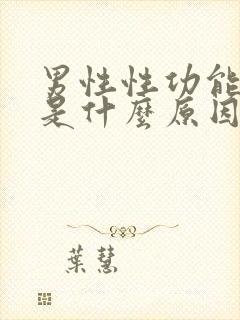 男性性功能
是什麼原因
葉慧